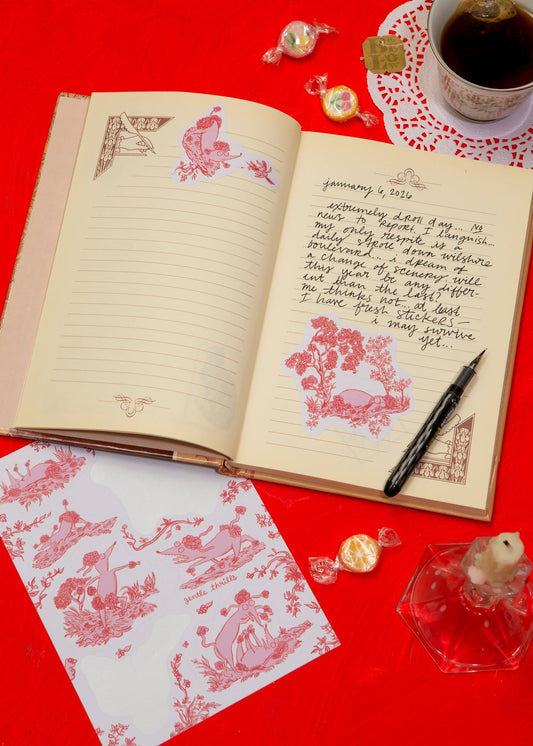 january 6, 2026
extremely droll day... No
news to report. I languish...
my only respite is a
daily stroll down wilshire
boulevard... i dream of
a change of scenery. will
this year be any differ-
ent than the last?
me thinks not... at least
I have fresh stickers—
i may survive
yet...
gentle thrills